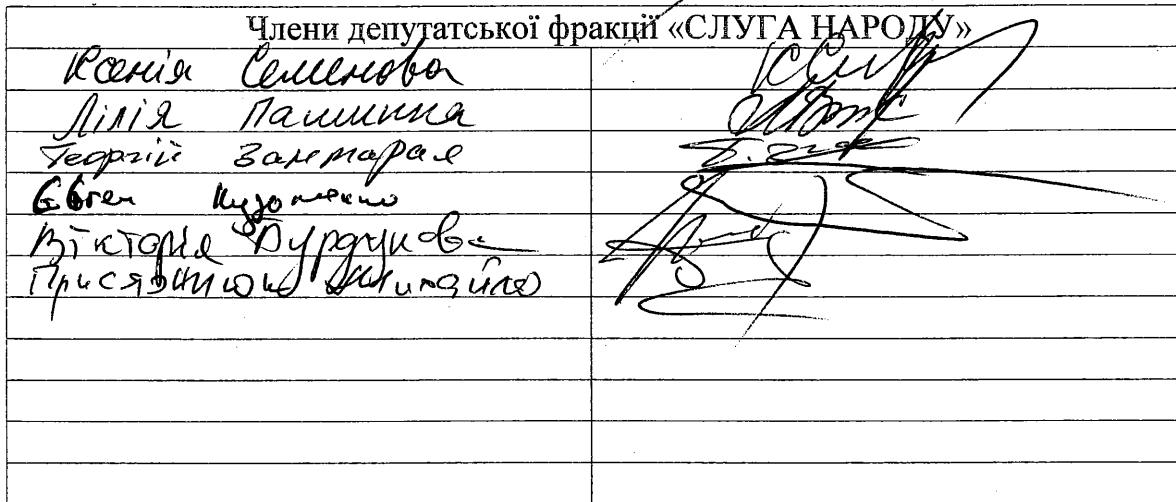 Члени депутатської фракції «СЛУГА НАРОДУ»
Ксенія Семенова
Лілія Пашинна
Георгій Зантарая
Євген
Вікторія Бурдукова
Присяжнюк Михайло